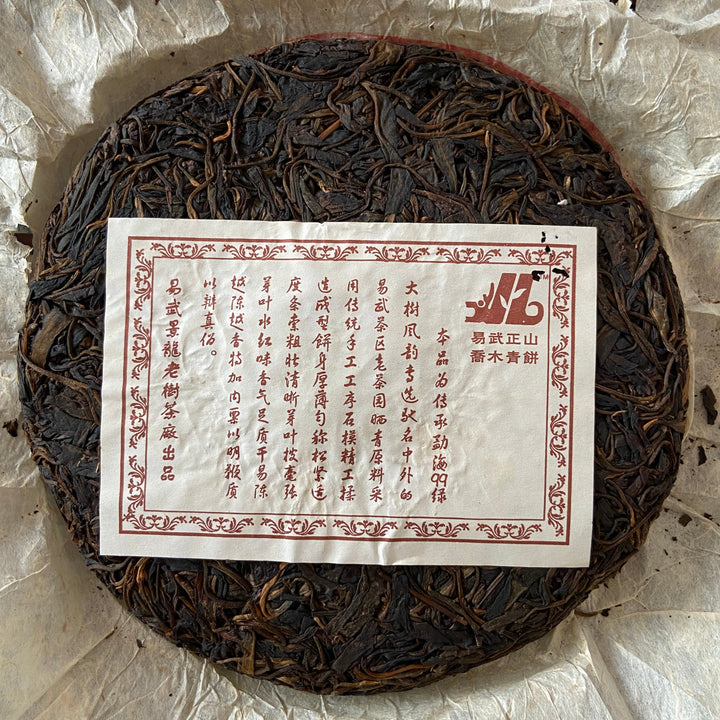 易武正山
喬木青餅
本品为传承勐海99绿
大樹风韵专选驮名中外的
易武茶区老茶园晒青原料采
用传统手工工序石模精工揉
造成型餅身厚薄匀称松紧适
度条索粗壮清晰芽叶披毫张
芽叶水红味香气足质干易陈
越陈越香特加内票以明鞭质
以辨真佰。
易武景龍老樹茶廠出品